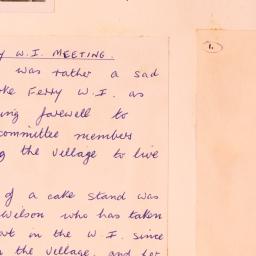 Y W.I. MEETING.
was rather a sad
ke Ferry W.I. as
ing farewell to
committee members
g the village to live
of a cake stand was
Wilson who has taken
t in the W.I. since
the village, and her
1.